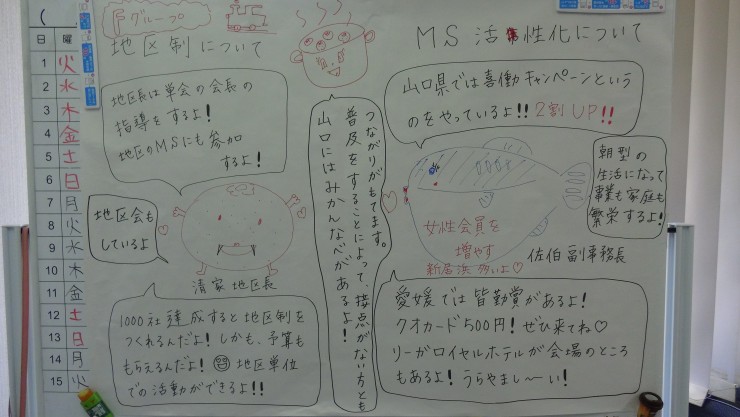 (
日 曜
1 火
2 水
3 木
4 金
5 土
6 日
7 月
8 火
9 水
10 木
11 金
12 土
13 日
14 月
15 火
Fグループ
地区制について
地区長は単会の会長の
指導をするよ!
地区のMSにも参加
するよ!
地区会も
しているよ
清家 地区長
1000社達成すると地区制を
つくれるんだよ!しかも、予算も
もらえるんだよ! 地区単位
での活動ができるよ!!
つながりがもてます。
普及をすることによって、接点がない方とも
山口にはみかんなべがあるよ!
MS活性化について
山口県では喜働キャンペーンという
のをやっているよ!!2割UP!!
朝型の
生活になって
事業も家庭も
繁栄するよ!
女性会員を
増やす
新居浜 多いよ♡
佐伯 副事務長
愛媛では皆勤賞があるよ!
クオカード500円!ぜひ来てね♡
リーガロイヤルホテルが会場のところ
もあるよ!うらやまし〜い!